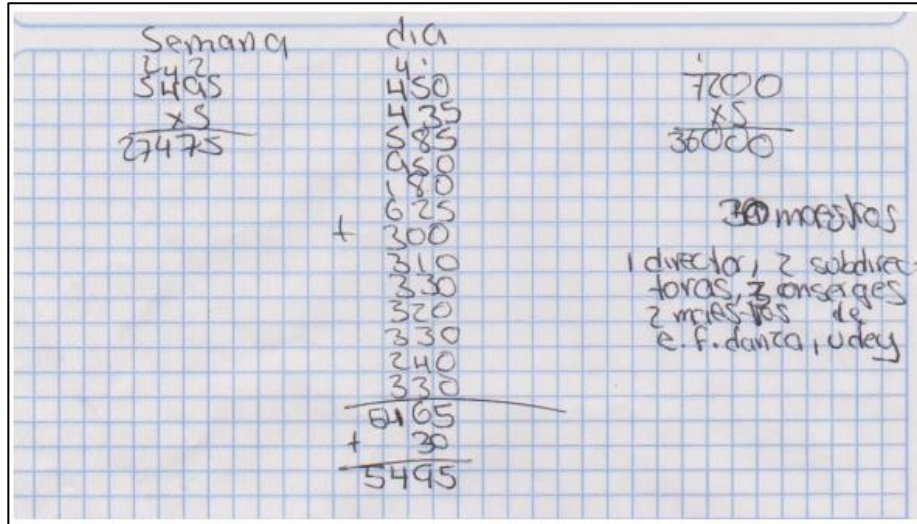 Semana
2 4 2
5495
x5
27475
dia
4 1
450
435
585
950
625
+ 300
310
330
320
330
240
330
5465
+ 30
5495
1
7200
x5
36000
30 maestros
1 director, 2 subdirec-
toras, 3 conserges
2 maestros de
e.f. danza, udey